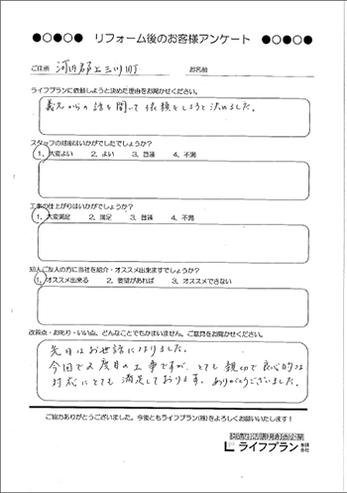 ●○●○● リフォーム後のお客様アンケート ●○●○●
ご住所 河内郡上三川町 お名前
ライフプランに依頼しようと決めた理由をお聞かせください。
義兄からの話を聞いて依頼をしようと決めました。
スタッフの対応はいかがでしたでしょうか?
1. 大変よい 2. よい 3. 普通 4. 不満
工事の仕上がりはいかがでしょうか?
1. 大変満足 2. 満足 3. 普通 4. 不満
知人ご友人の方に当社を紹介・オススメ出来ますでしょうか?
1. オススメ出来る 2. 要望があれば 3. オススメできない
改善点・お叱り・いい点、どんなことでもかまいません。ご意見をお聞かせください。
先日はお世話になりました。
今回で2度目の工事ですが、とても親切で良心的な
対応にとても満足しております。ありがとうございました。
ご協力ありがとうございました。今後ともライフプラン(株)をよろしくお願いいたします!
ライフプラン 株式会社